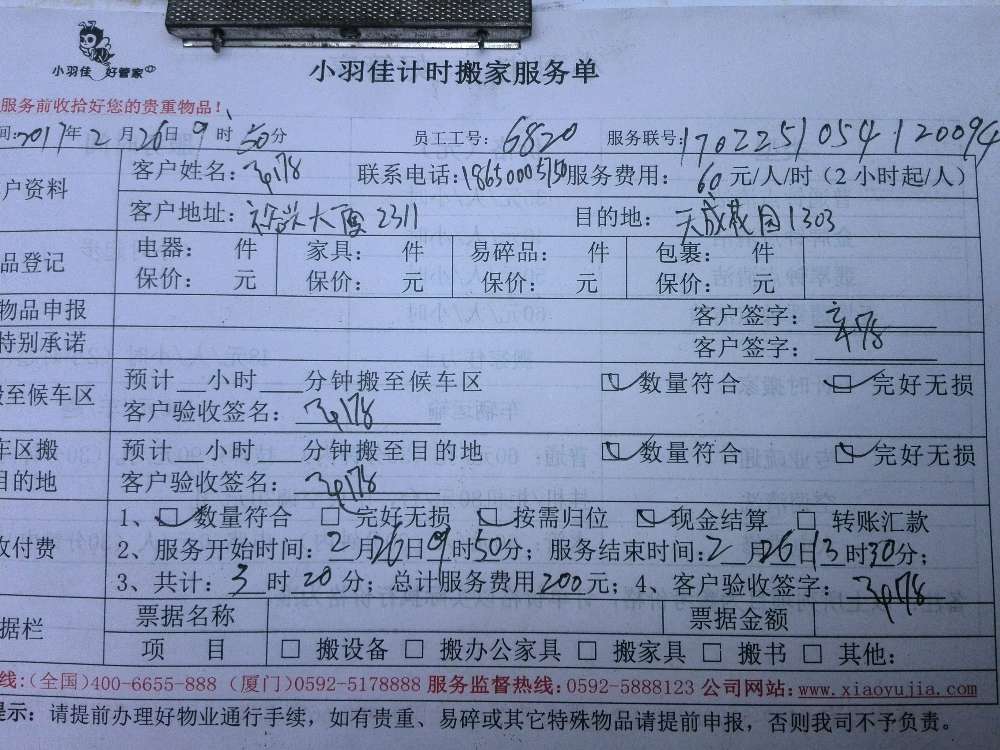 小羽佳 好管家
小羽佳计时搬家服务单
服务前收拾好您的贵重物品！
间:2017年2月26日9时50分 员工工号:6820 服务联号:1702251054120094
户资料 客户姓名: 联系电话:18650005750 服务费用: 60元/人/时（2小时起/人）
客户地址:裕兴大厦2311 目的地:天成花园1303
品登记 电器: 件 家具: 件 易碎品: 件 包裹: 件
保价: 元 保价: 元 保价: 元 保价: 元
物品申报 客户签字:
特别承诺 客户签字:
搬至候车区 预计__小时___分钟搬至候车区 数量符合 完好无损
客户验收签名:
车区搬 预计__小时___分钟搬至目的地 数量符合 完好无损
目的地 客户验收签名:
收付费 1、数量符合 □ 完好无损 按需归位 现金结算 □ 转账汇款
2、服务开始时间:2月26日9时50分；服务结束时间:2月26日13时30分；
3、共计:3时20分；总计服务费用200元；4、客户验收签字:
据栏 票据名称 票据金额
项 目 □ 搬设备 □ 搬办公家具 □ 搬家具 □ 搬书 □ 其他:
线:(全国)400-6655-888 (厦门)0592-5178888 服务监督热线:0592-5888123 公司网站:www.xiaoyujia.com
提示: 请提前办理好物业通行手续，如有贵重、易碎或其它特殊物品请提前申报，否则我司不予负责。